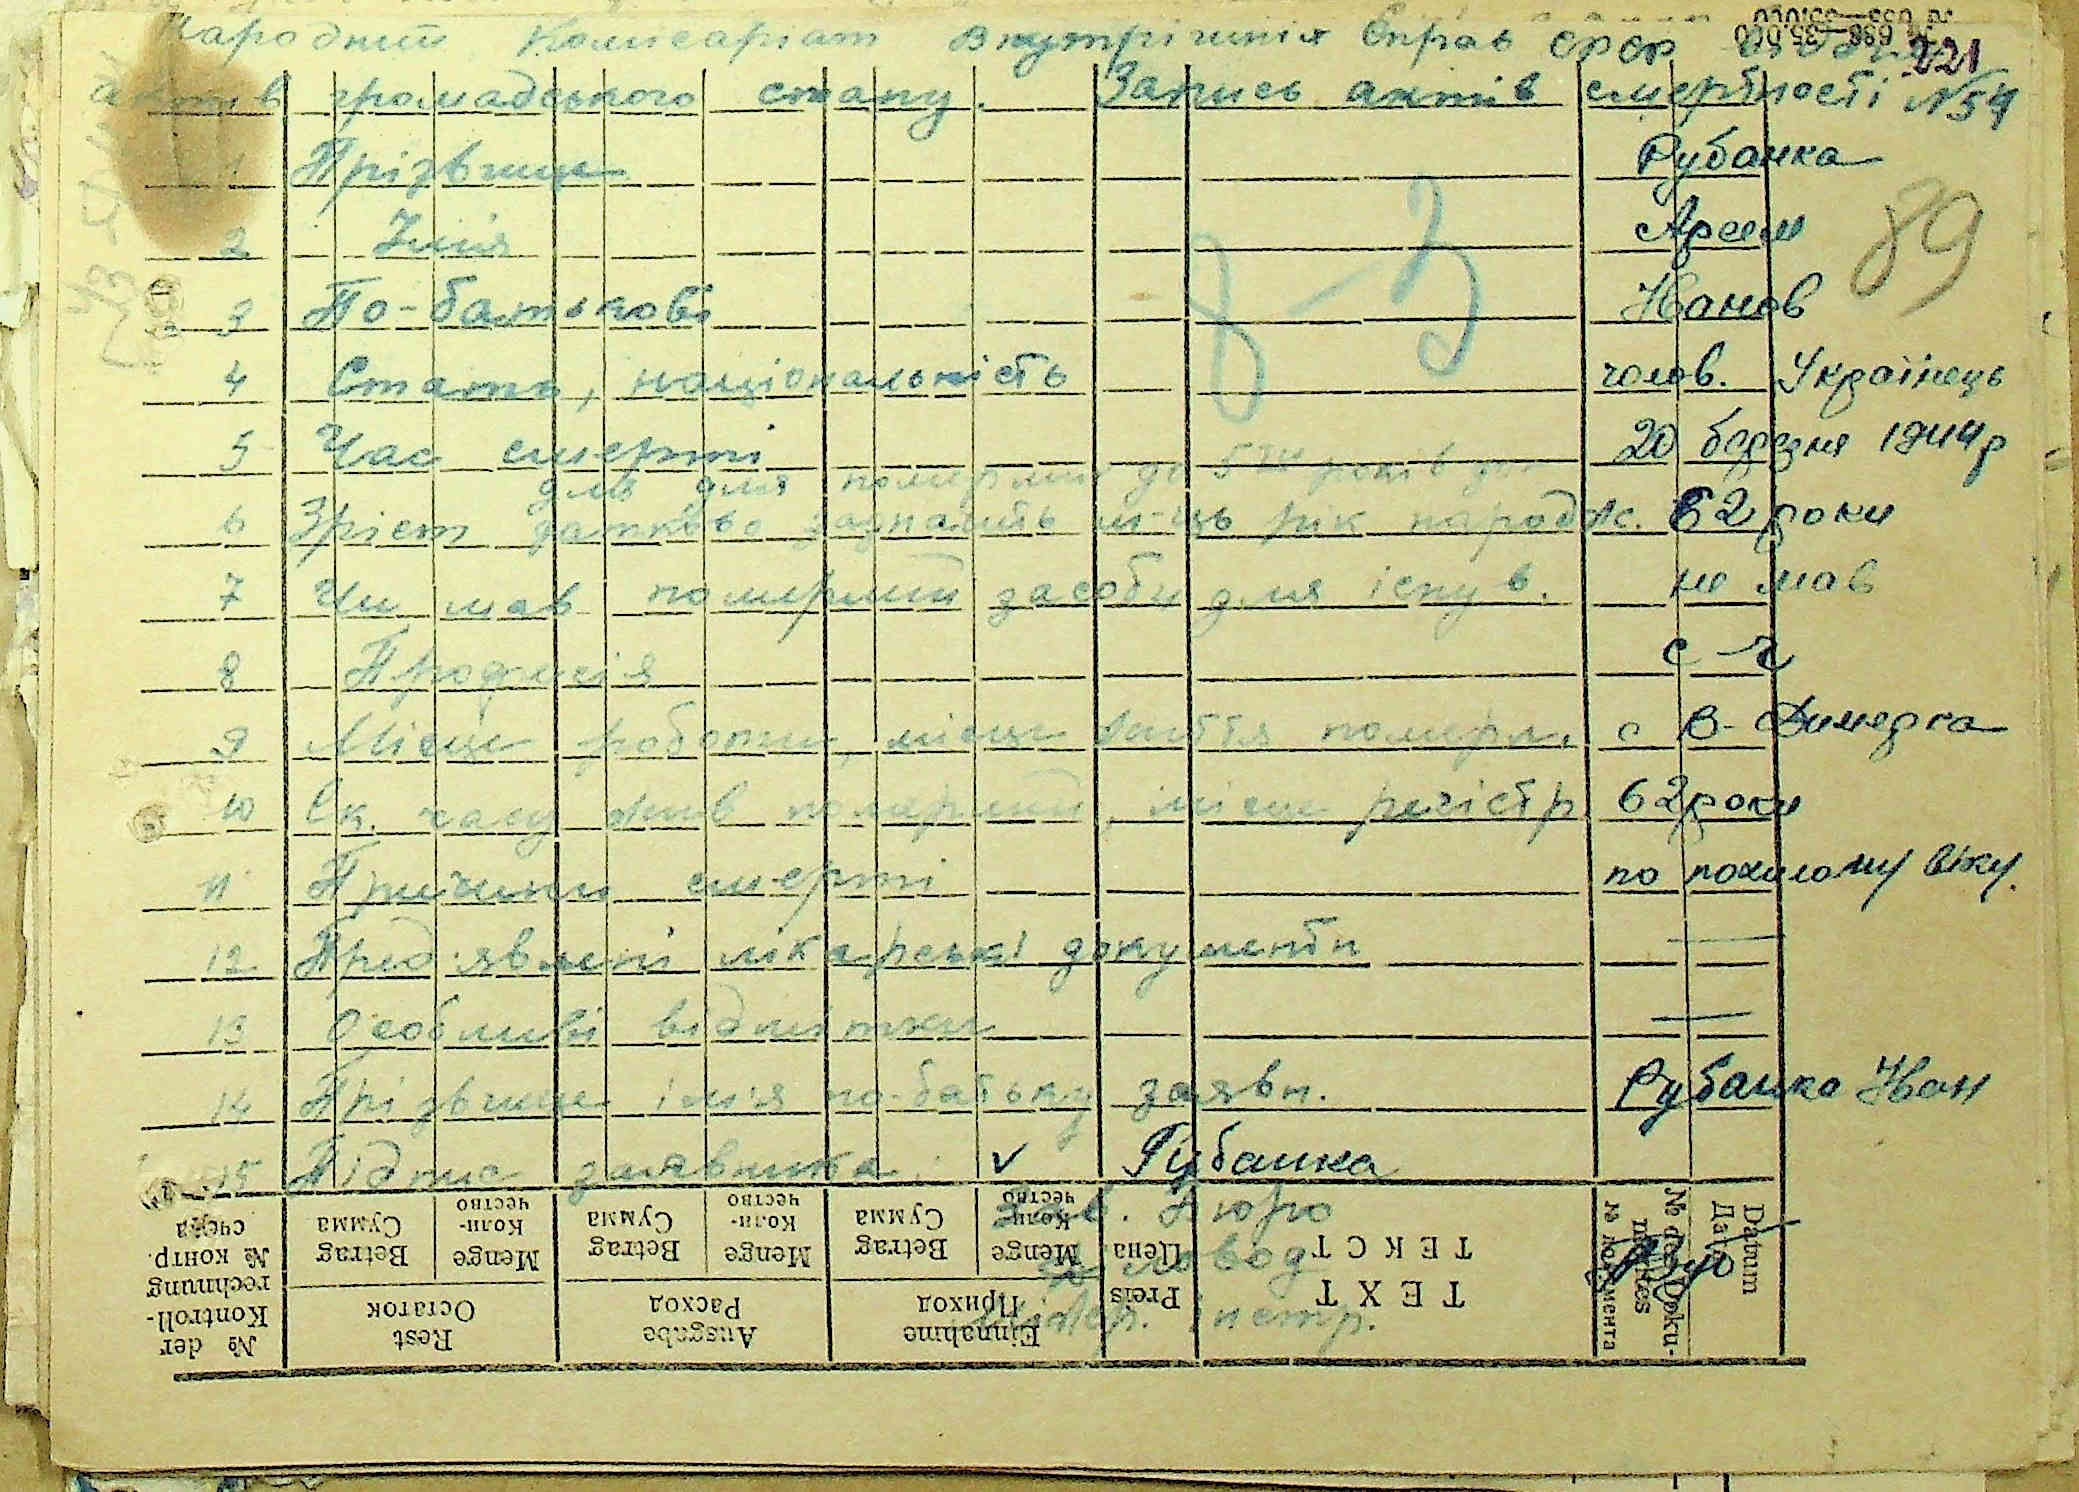 Народний Комісаріат Внутрішніх Справ СРСР
221
актів громадського стану. Запись актів смертності №54
1 Прізвище Рубанка
2 Імія Арсем
3 По-батькові Іванов
89
8-3
4 Стать, національність чолов. Українець
5 Час смерті 20 березня 1944р
для для померших до 5ти років до-
6 Зріст датково зазначить м-ць рік народж. 62 роки
7 Чи мав померший засоби для існув. не мав
8 Професія с-г
9 Місце роботи, місце життя померл. с В-Димерка
10 Ск. часу жив померший, місце регістр 62 роки
11 Причини смерті по похилому віку.
12 Пред'явлені лікарські документи —
13 Особливі відмітки —
14 Прізвище імія по-батьку заявн. Рубанка Іван
15 Підпис заявника. ✓ Рубанка
Зав. Бюро
Діловод
Інстр.
№ der Kontroll-rechnung № контр. счета
Rest Остаток
Betrag Сумма
Menge Коли-чество
Ausgabe Расход
Betrag Сумма
Menge Коли-чество
Einnahme Приход
Betrag Сумма
Menge Коли-чество
Preis Цена
TEXT ТЕКСТ
№ des Doku-mentes № документа
Datum Дата